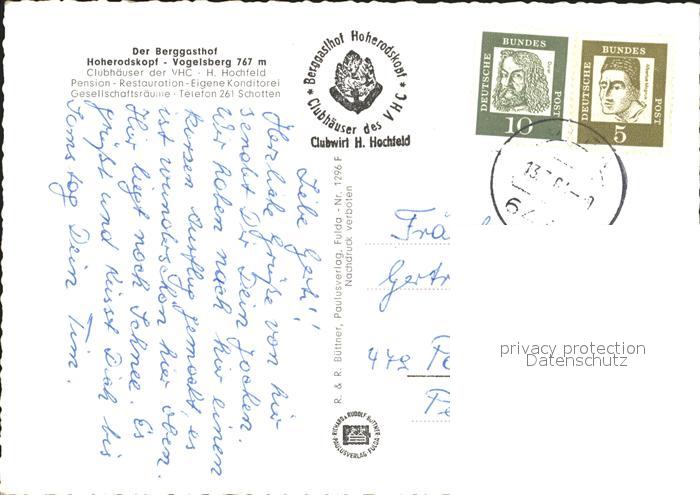 Der Berggasthof
Hoherodskopf - Vogelsberg 767 m
Clubhäuser der VHC · H. Hochfeld
Pension - Restauration - Eigene Konditorei
Gesellschaftsräume · Telefon 261 Schotten
* Berggasthof Hoherodskopf *
Clubhäuser des VHC
Clubwirt H. Hochfeld
DEUTSCHE BUNDES POST
10
DEUTSCHE BUNDES POST
5
Liebe Gerti!
Herzliche Grüße von hier
sendet Dir Dein
Wir haben nach hier einen
kurzen Ausflug gemacht, es
ist wunderschön hier oben.
Hier liegt noch Schnee. Es
grüßt und küsst Dich bis
Samstag Dein
R. & R. Büttner, Paulusverlag, Fulda - Nr. 1296 F
Nachdruck verboten
RICHARD & RUDOLF BÜTTNER
PAULUSVERLAG FULDA
Frä
Gertr
privacy protection
Datenschutz